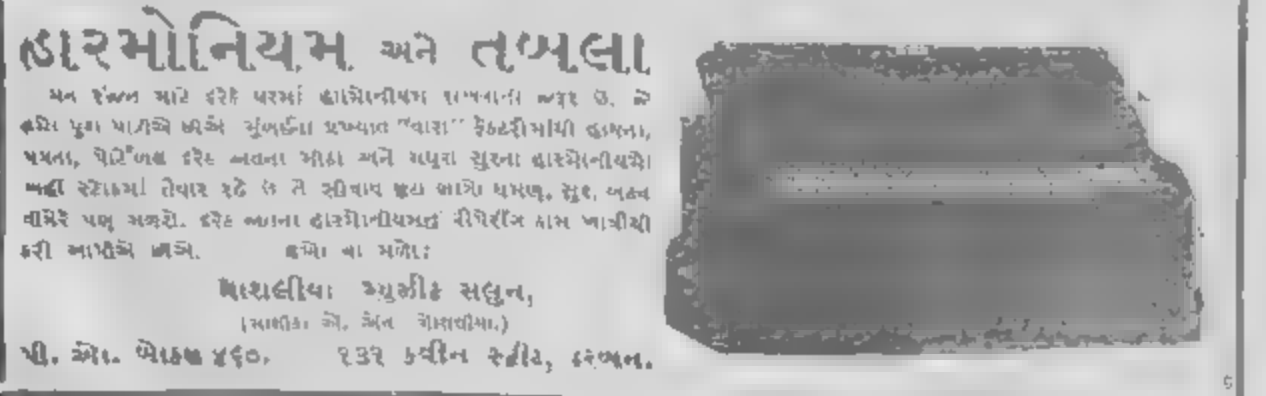 હારમોનિયમ અને તબલા
મન રંજન માટે દરેક ઘરમાં હારમોનીયમ રાખવાની જરૂર છે. તે
અમે પુરા પાડીએ છીએ મુંબઈના પ્રખ્યાત "વારા" ફેકટરીમાંથી હાથના,
પગના, પોર્ટેબલ દરેક જાતના મીઠા અને મધુરા સુરના હારમોનીયમો
અહીં સ્ટોકમાં તૈયાર રહે છે તે સીવાય છુટા ભાગો ધમણ, સુર, બટન
વીગેરે પણ મળશે. દરેક જાતના હારમોનીયમનું રીપેરીંગ કામ ખાત્રીથી
કરી આપીએ છીએ. લખો વા મળો:
મ્યુઝીક સલુન,
પી. ઓ. બોક્ષ ૪૬૦. ૧૩૧ કવીન સ્ટ્રીટ, ડરબન.